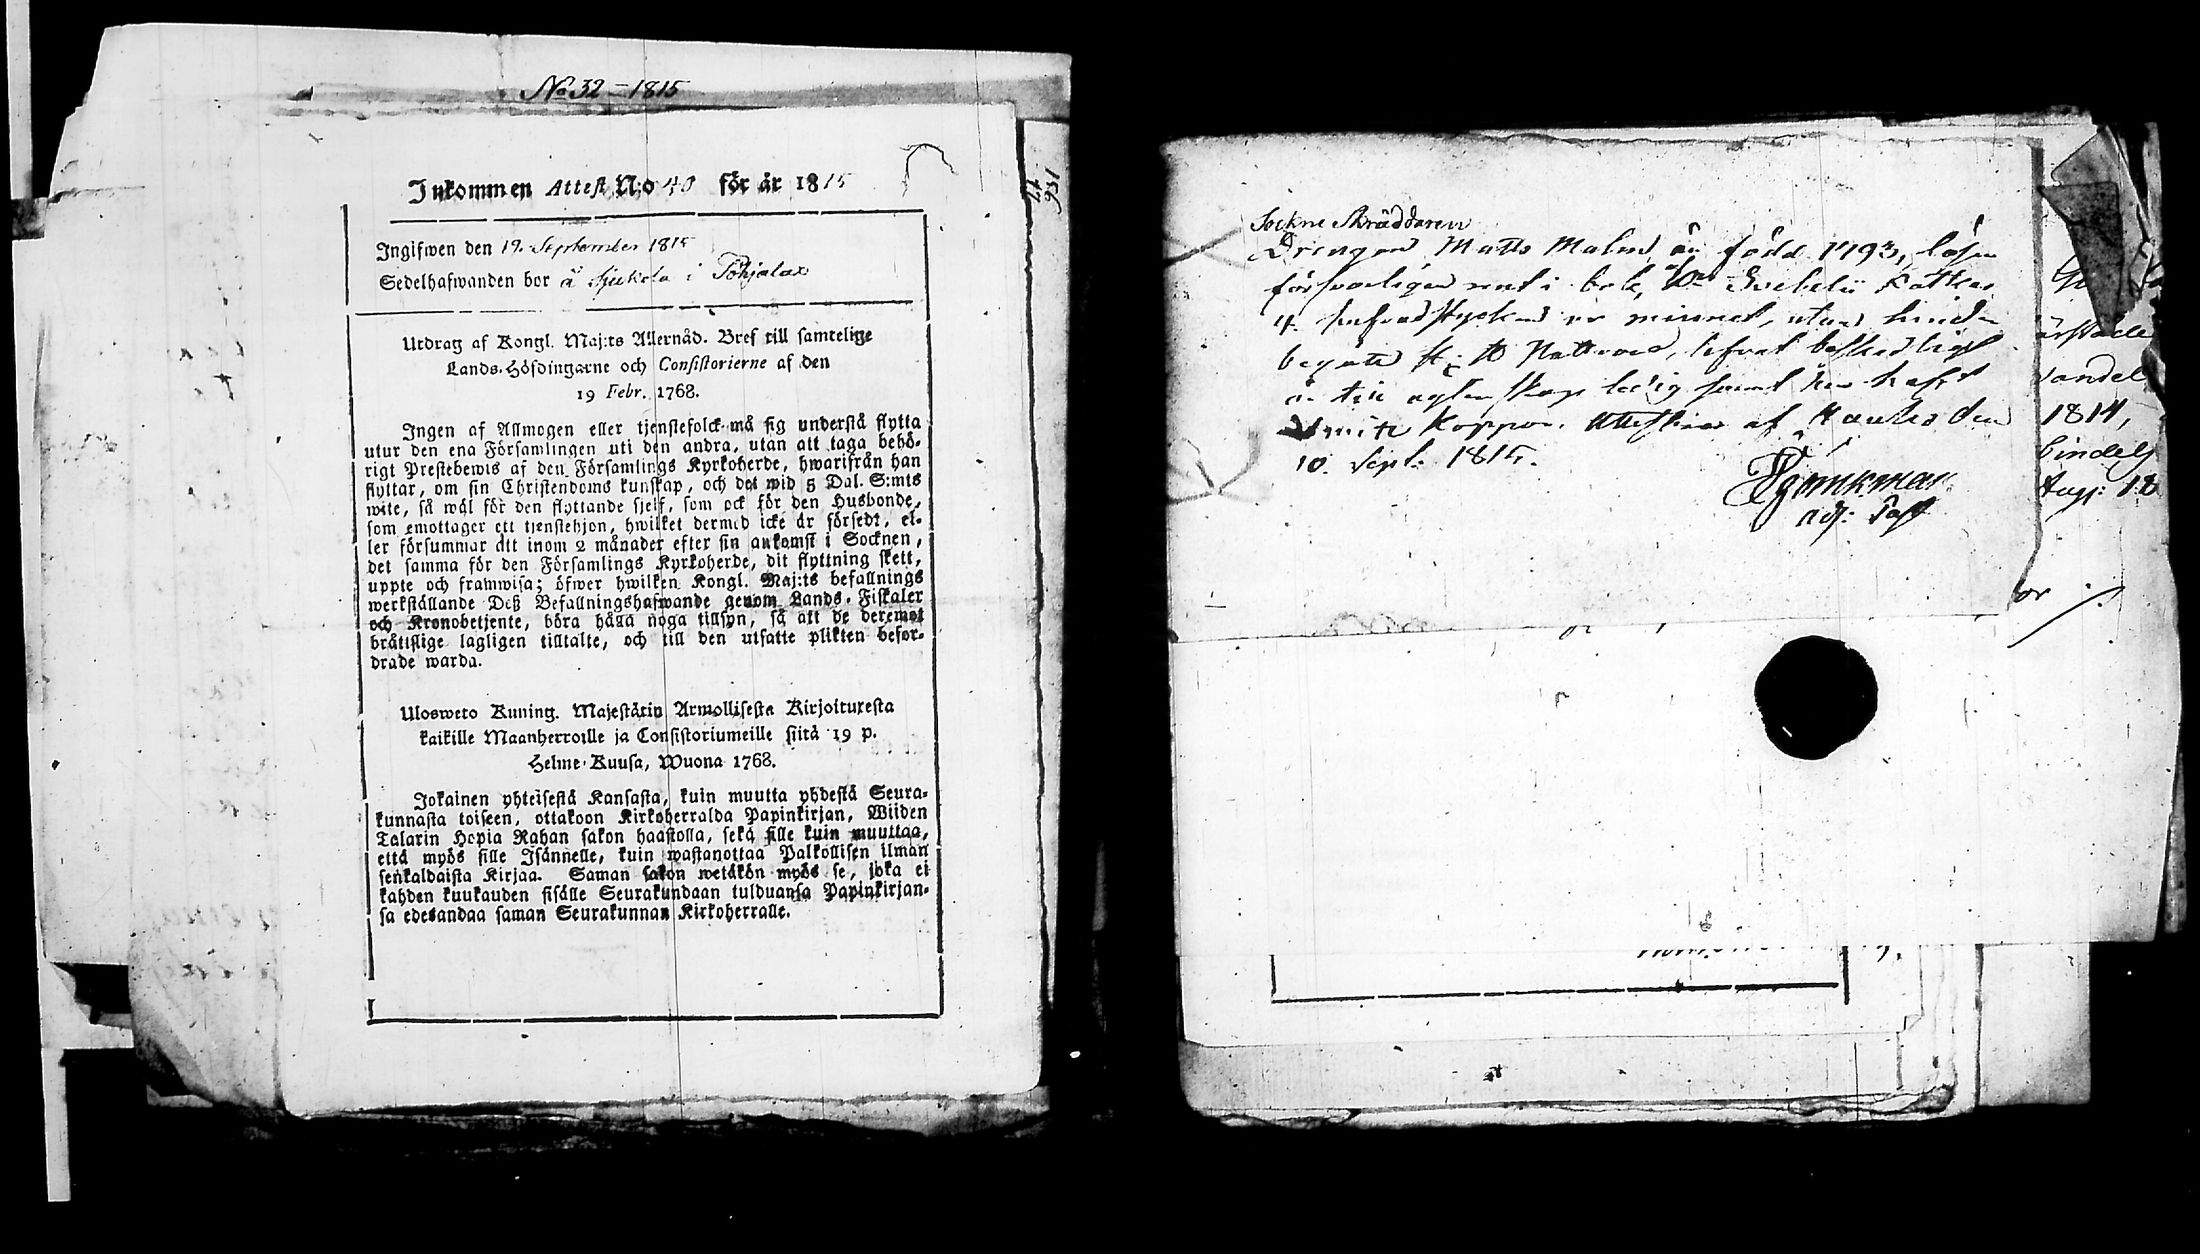 No 32 - 1815
Inkommen Attest N:o 40 för år 1815
Ingifwen den 19. September 1815
Sedelhafwanden bor å Sjukola i Pohjalax
Utdrag af Kongl. Maj:ts Allernåd. Bref till samtelige
Lands-Höfdingarne och Consistorierne af den
19 Febr. 1768.
Ingen af Allmogen eller tjenstefolck må sig understå flytta
utur den ena Församlingen uti den andra, utan att taga behö-
rigt Prestebewis af den Församlings Kyrkoherde, hwarifrån han
flyttar, om sin Christendoms kunskap, och det wid 5 Dal. S:mts
wite, så wäl för den flyttande sjelf, som ock för den Husbonde,
som emottager ett tjenstehjon, hwilket dermed icke är försedt, el-
ler försummar att inom 2 månader efter sin ankomst i Socknen,
det samma för den Församlings Kyrkoherde, dit flyttning skett,
uppte och framwisa; öfwer hwilken Kongl. Maj:ts befallnings
werkställande Deß Befallningshafwande genom Lands-Fiskaler
och Kronobetjente, böra hålla noga tillsyn, så att de deremot
bråttslige lagligen tilltalte, och till den utsatte plikten befor-
drade warda.
Ulosweto Kuning. Majestätin Armollisesta Kirjoituxesta
kaikille Maanherroille ja Consistoriumeille siitä 19 p.
Helme-Kuusa, Wuona 1768.
Jokainen yhteisestä Kansasta, kuin muutta yhdestä Seura-
kunnasta toiseen, ottakoon Kirkoherralda Papinkirjan, Wiiden
Talarin Hopia Rahan sakon haastolla, sekä sille kuin muuttaa,
että myös sille Isännelle, kuin wastanottaa Palkollisen ilman
senkaldaista Kirjaa. Saman sakon wetäkön myös se, joka ei
kahden kuukauden sisälle Seurakundaan tulduansa Papinkirjan-
sa edesandaa saman Seurakunnan Kirkoherralle.
Sockne Skräddaren
Drengen Matts Malm, är född 1793, läser
försvarligen rent i bok,
4. hufvudstycken ur minnet, utan hinder
begått H: H: Nattvard, lefvat beskedligt
är till ägtenskap ledig samt har haft
Koppor. Attesterar af Hauho den
10. Sept: 1815.
adj: Past
1814,